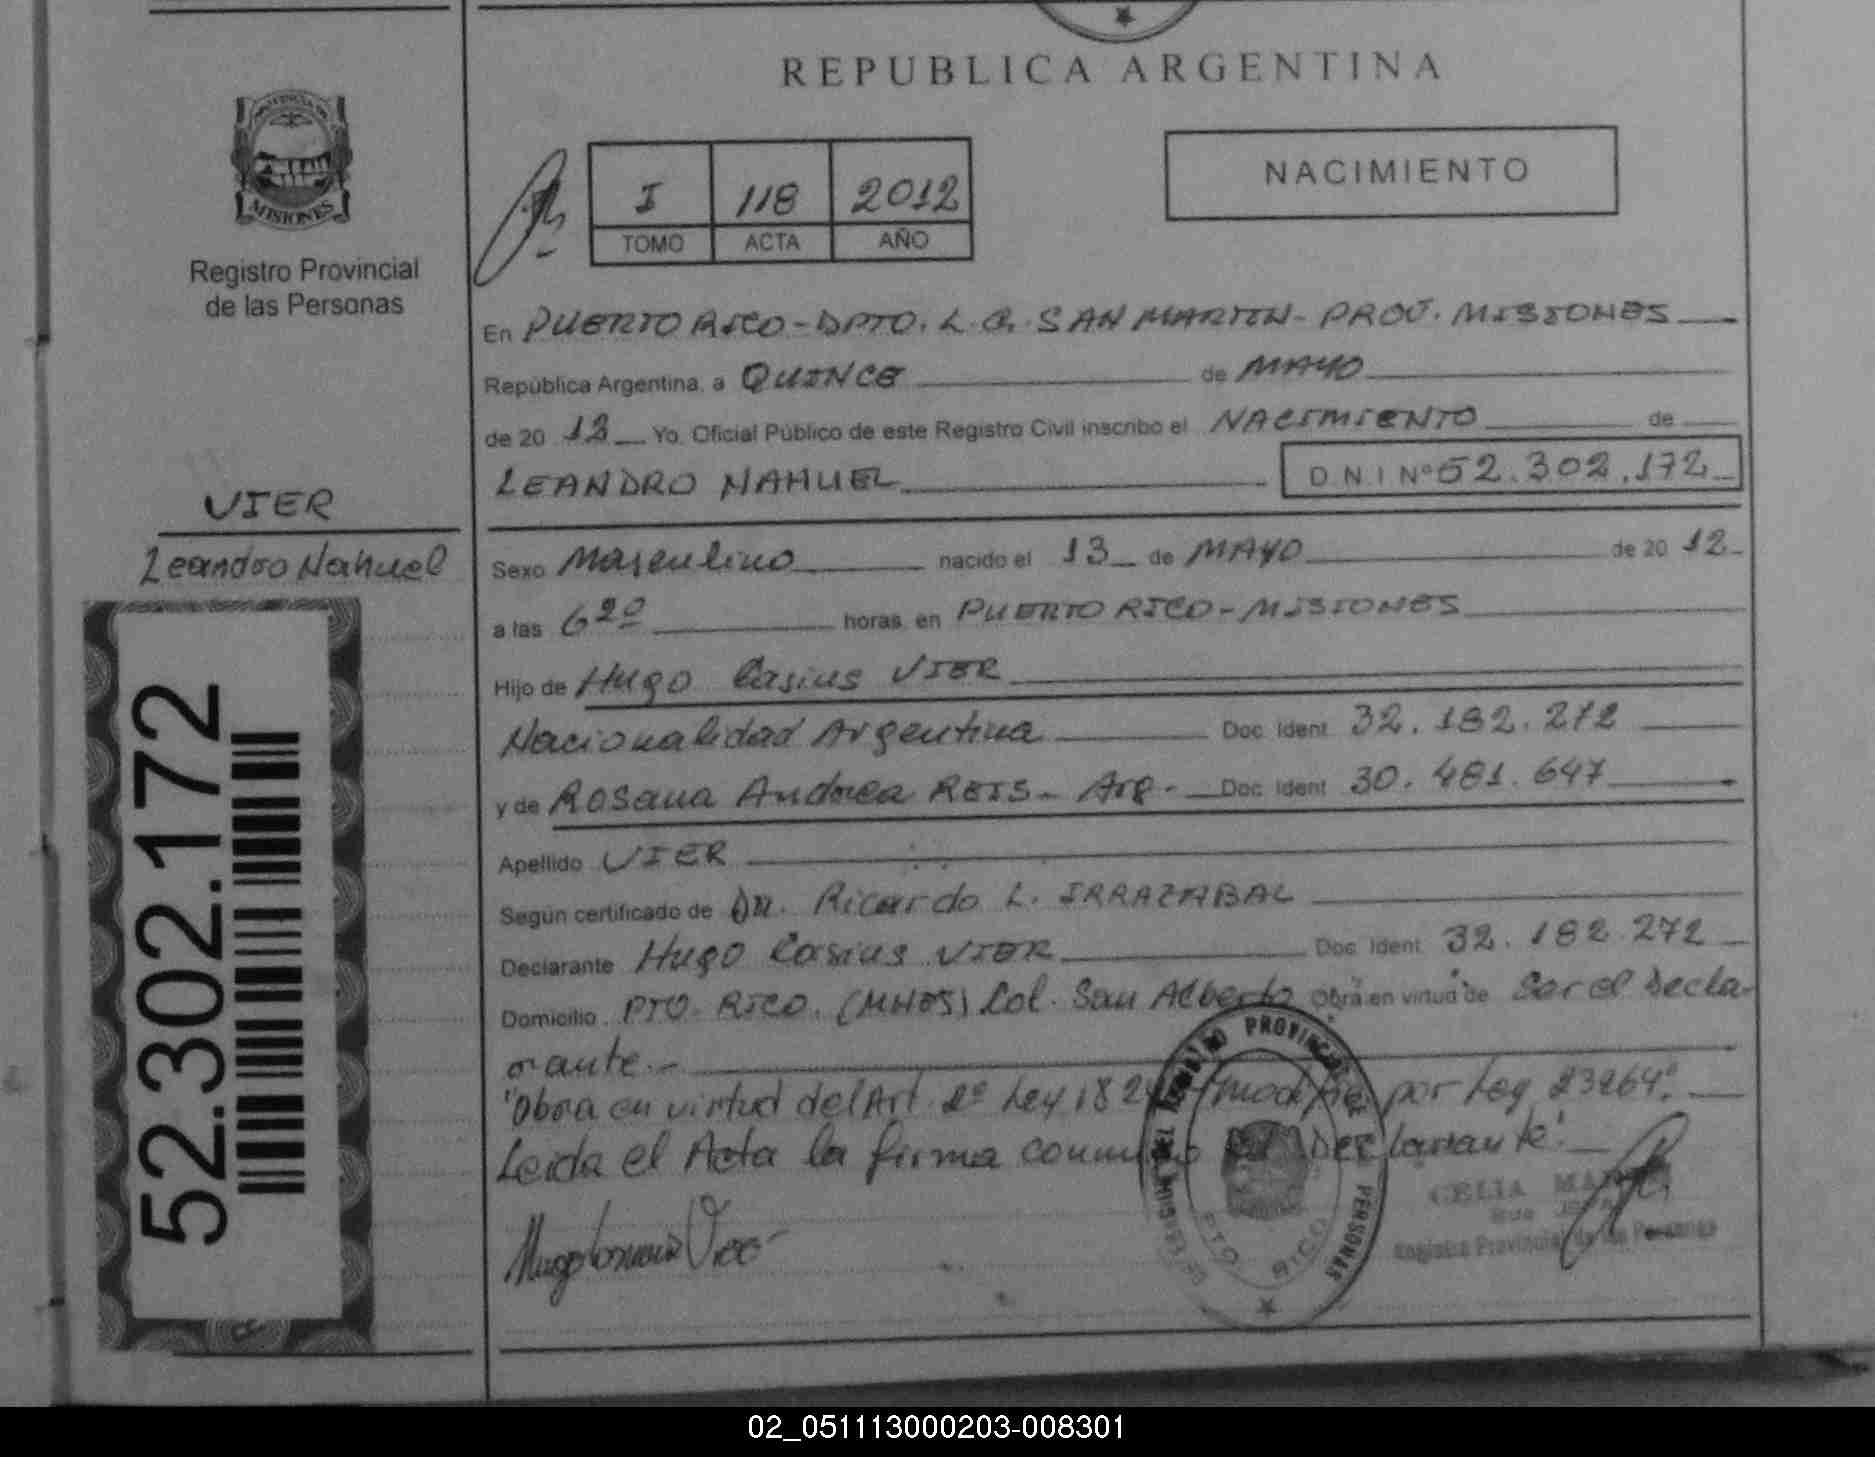 REPUBLICA ARGENTINA
MISIONES
Registro Provincial
de las Personas
I 118 2012
TOMO ACTA AÑO
NACIMIENTO
En PUERTO RICO - DPTO. L. G. SAN MARTIN - PROV. MISIONES
República Argentina, a QUINCE de MAYO
de 20 12 Yo, Oficial Público de este Registro Civil inscribo el NACIMIENTO de
LEANDRO NAHUEL D.N.I Nº 52.302.172
VIER
Leandro Nahuel
52.302.172
Sexo Masculino nacido el 13 de MAYO de 20 12
a las 6 20 horas, en PUERTO RICO - MISIONES
Hijo de Hugo Casius VIER
Nacionalidad Argentina Doc. Ident. 32.182.272
y de Rosana Andrea REIS - Arg.- Doc. Ident. 30.481.647
Apellido VIER
Según certificado de Dr. Ricardo L. IRRAZABAL
Declarante Hugo Casius VIER Doc. Ident. 32.182.272
Domicilio PTO. RICO. (MNES) Col. San Alberto Obra en virtud de Ser el Decla-
rante.-
"Obra en virtud del Art. 2º Ley 18 por Ley 23264".
Leída el Acta la firma conmigo el Declarante.
REGISTRO PROVINCIAL PERSONAS
PTO RICO
CELIA
Registro Provincial de las Personas
02_051113000203-008301